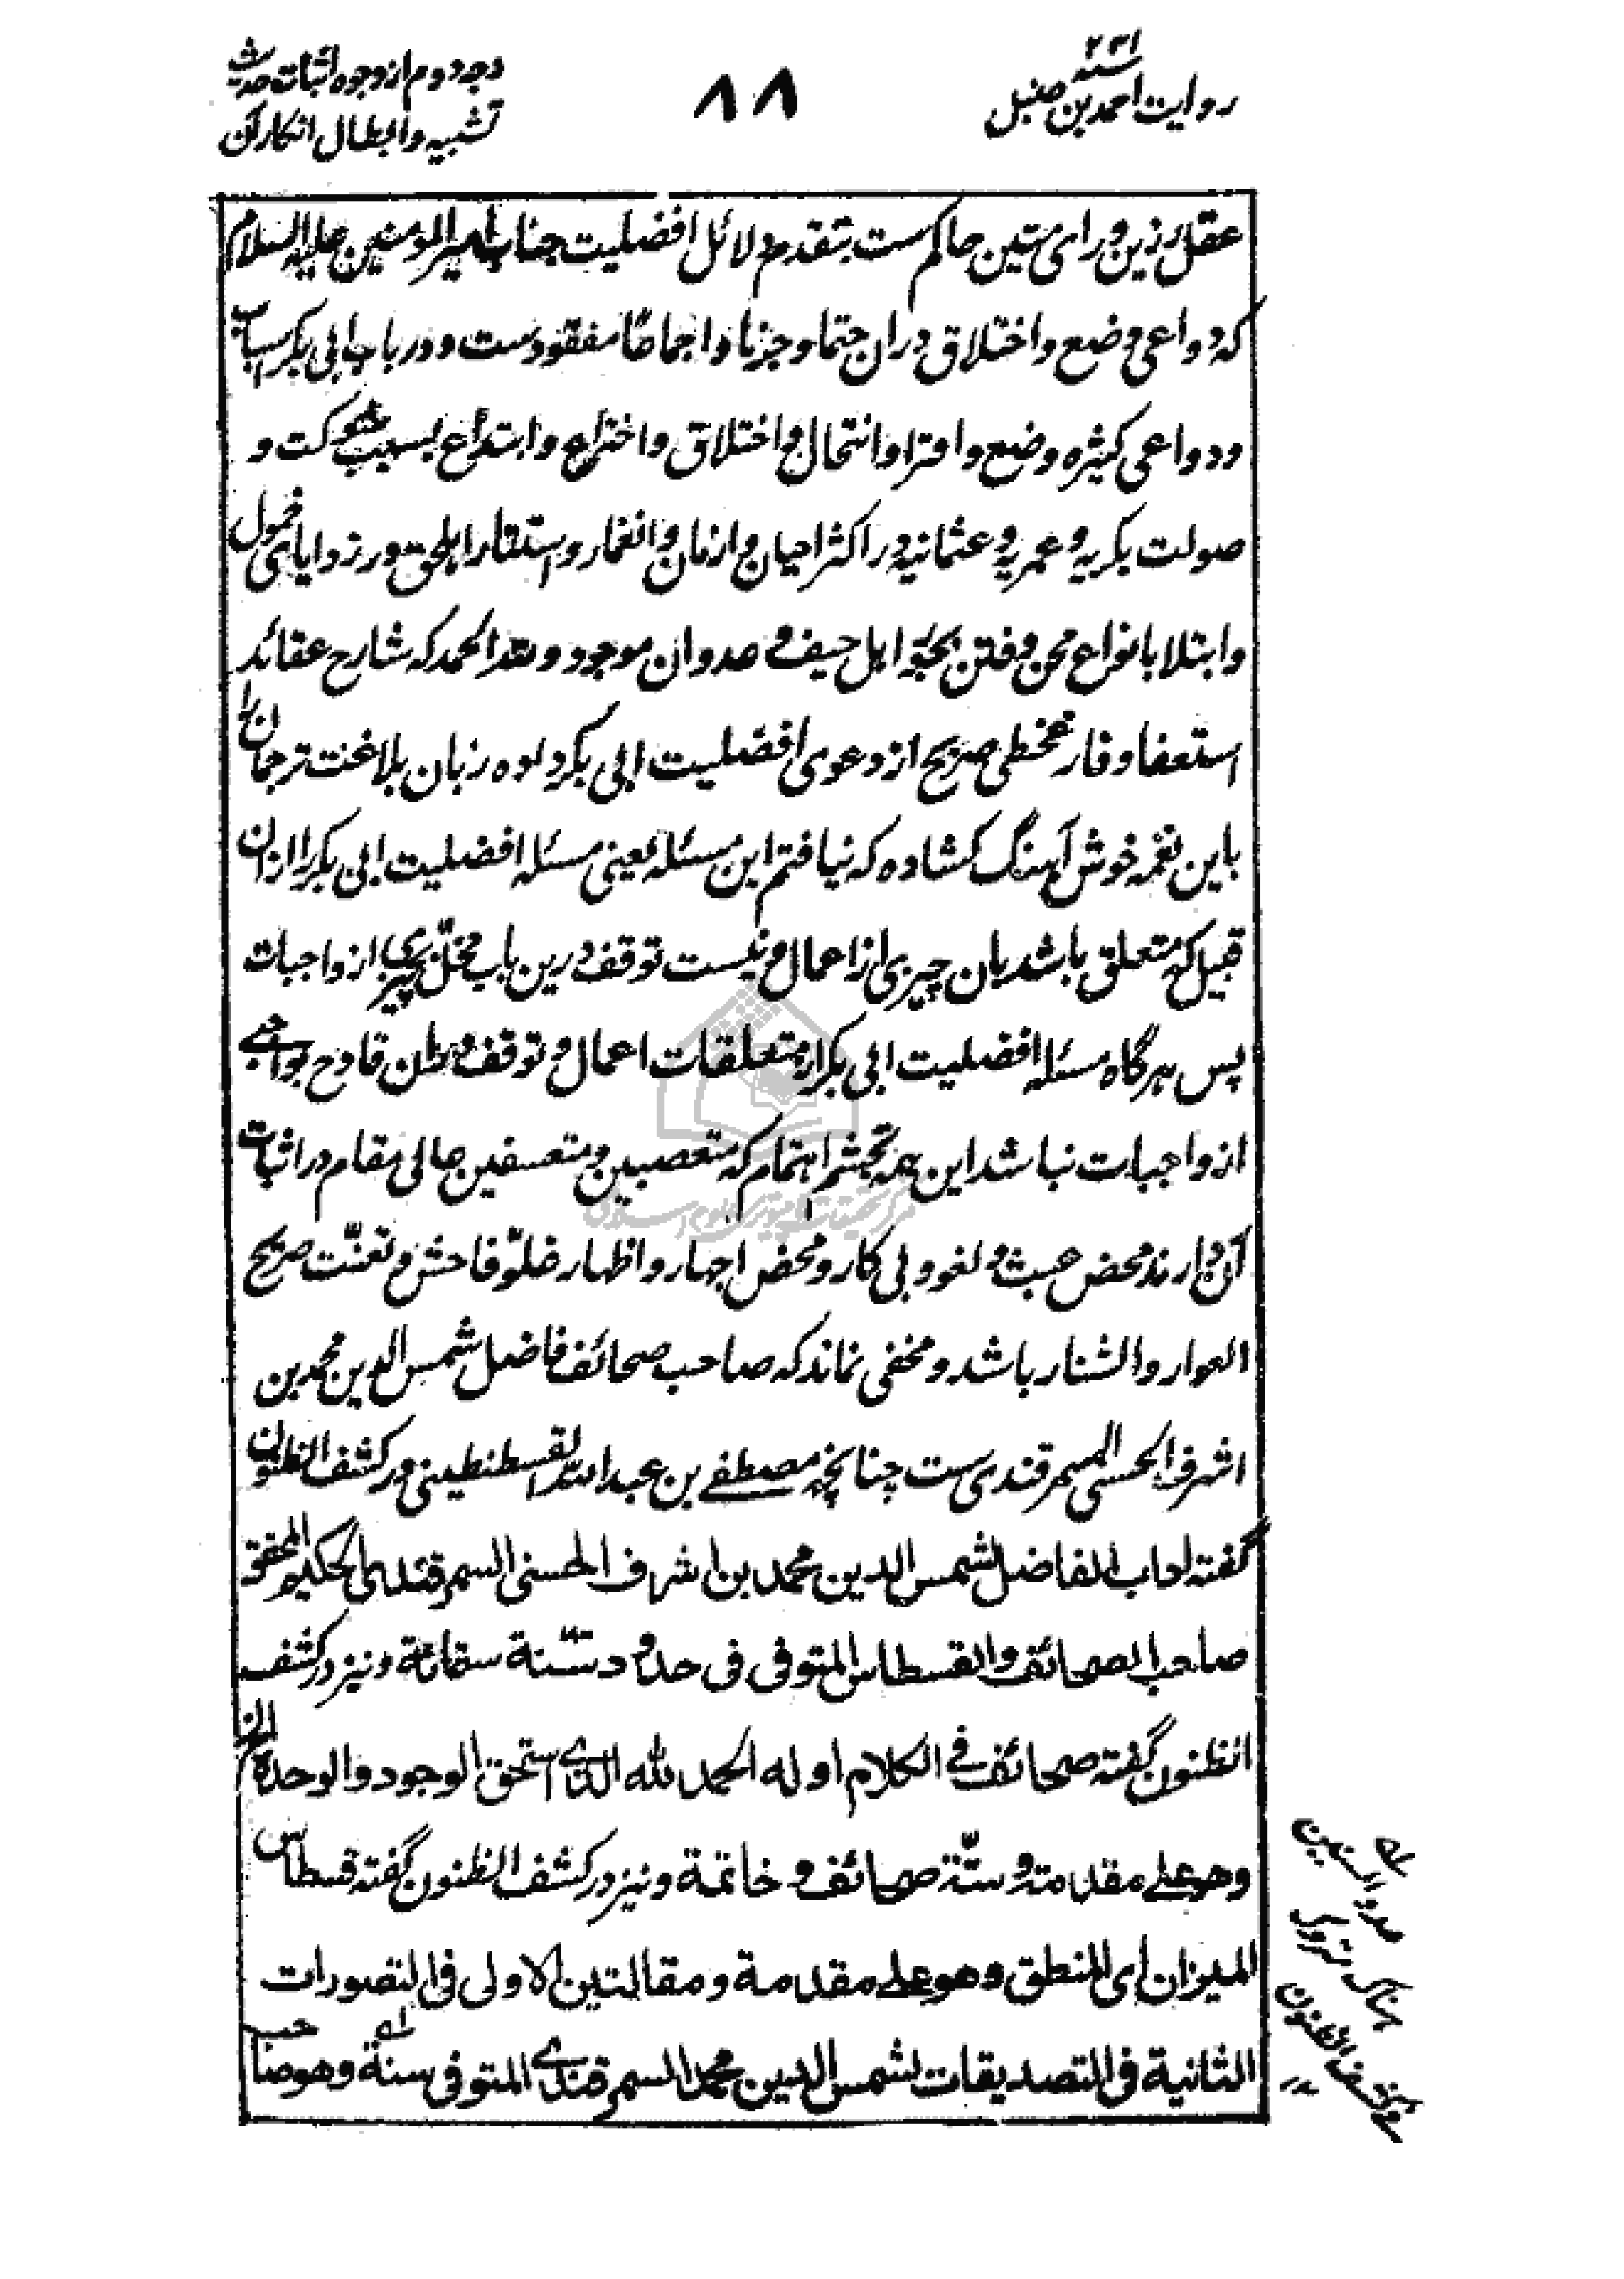 روایت احمد بن حنبل
۸۸
وجه دوم از وجوه اثبات حدیث
تشبیه و ابطال انکار آن
عقل رزین و رای متین حاکم ست بتقدم دلائل افضلیت جناب امیر المومنین علیه السلام
که دواعی وضع و اختلاق دران حتما و جزما و اجماعا مفقودست و در باب ابی بکر اسباب
و دواعی کثیره وضع و افترا و انتحال و اختلاق و اختراع و ابتداع بسبب شوکت و
صولت بکریه و عمریه و عثمانیه در اکثر احیان و ازمان و انغمار و استتار اهل حق در زوایای خمول
و ابتلا بانواع محن و فتن بجور اهل حیف و عدوان موجود و لله الحمد که شارح عقائد
استعفا و فارغخطی صریح از دعوی افضلیت ابی بکر داده زبان بلاغت ترجمان را
باین نغمه خوش آهنگ کشاده که نیافتم این مسئله یعنی مسئله افضلیت ابی بکر را ازان
قبیل که متعلق باشد بان چیزی از اعمال و نیست توقف درین باب مخلّ بچیزی از واجبات
پس هرگاه مسئله افضلیت ابی بکر از متعلقات اعمال و توقف دران قادح بواجبی
از واجبات نباشد این همه تجشم اهتمام که متعصبین و متعسفین عالی مقام در اثبات
آن دارند محض عبث و لغو و بی کار و محض اجهار و اظهار غلوّ فاحش و تعنّت صریح
العوار و الشنار باشد و مخفی نماند که صاحب صحائف فاضل شمس الدین محمد بن
اشرف الحسنی السمرقندی ست چنانچه مصطفے بن عبد الله القسطنطینی در کشف الظنون
گفته اداب الفاضل شمس الدین محمد بن اشرف الحسنی السمرقندی الحکیم المحقق
صاحب الصحائف والقسطاس المتوفی فی حدود سنة ستمائة و نیز در کشف
الظنون گفته صحائف فی الکلام اوله الحمد لله الذی استحق الوجود والوحدة الخ
وهو علی مقدمة وستّة صحائف و خاتمة و نیز در کشف الظنون گفته قسطاس
المیزان ای المنطق وهو علی مقدمة و مقالتین الاولی فی التصورات
الثانیة فی التصدیقات لشمس الدین محمد السمرقندی المتوفی سنة وهو صاحب